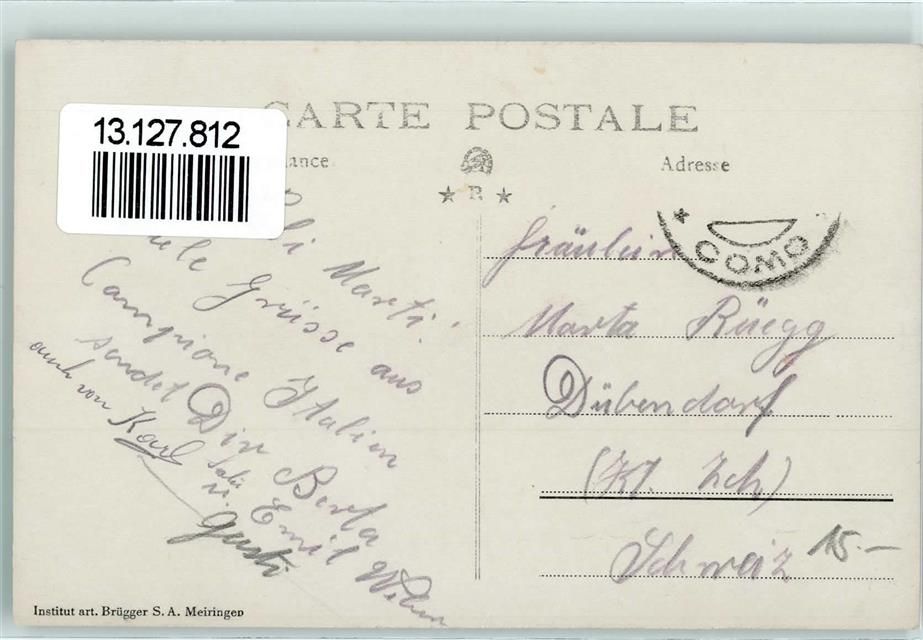 13.127.812
CARTE POSTALE
Adresse
★ R ★
COMO
Marti!
Grüsse aus
Campione Italien
sendet Dir Berta
u. Emil
auch von Karl
Gusti
Fräulein
Marta Rüegg
Dübendorf
(Kt. Zch)
Schweiz
15.—
Institut art. Brügger S. A. Meiringen